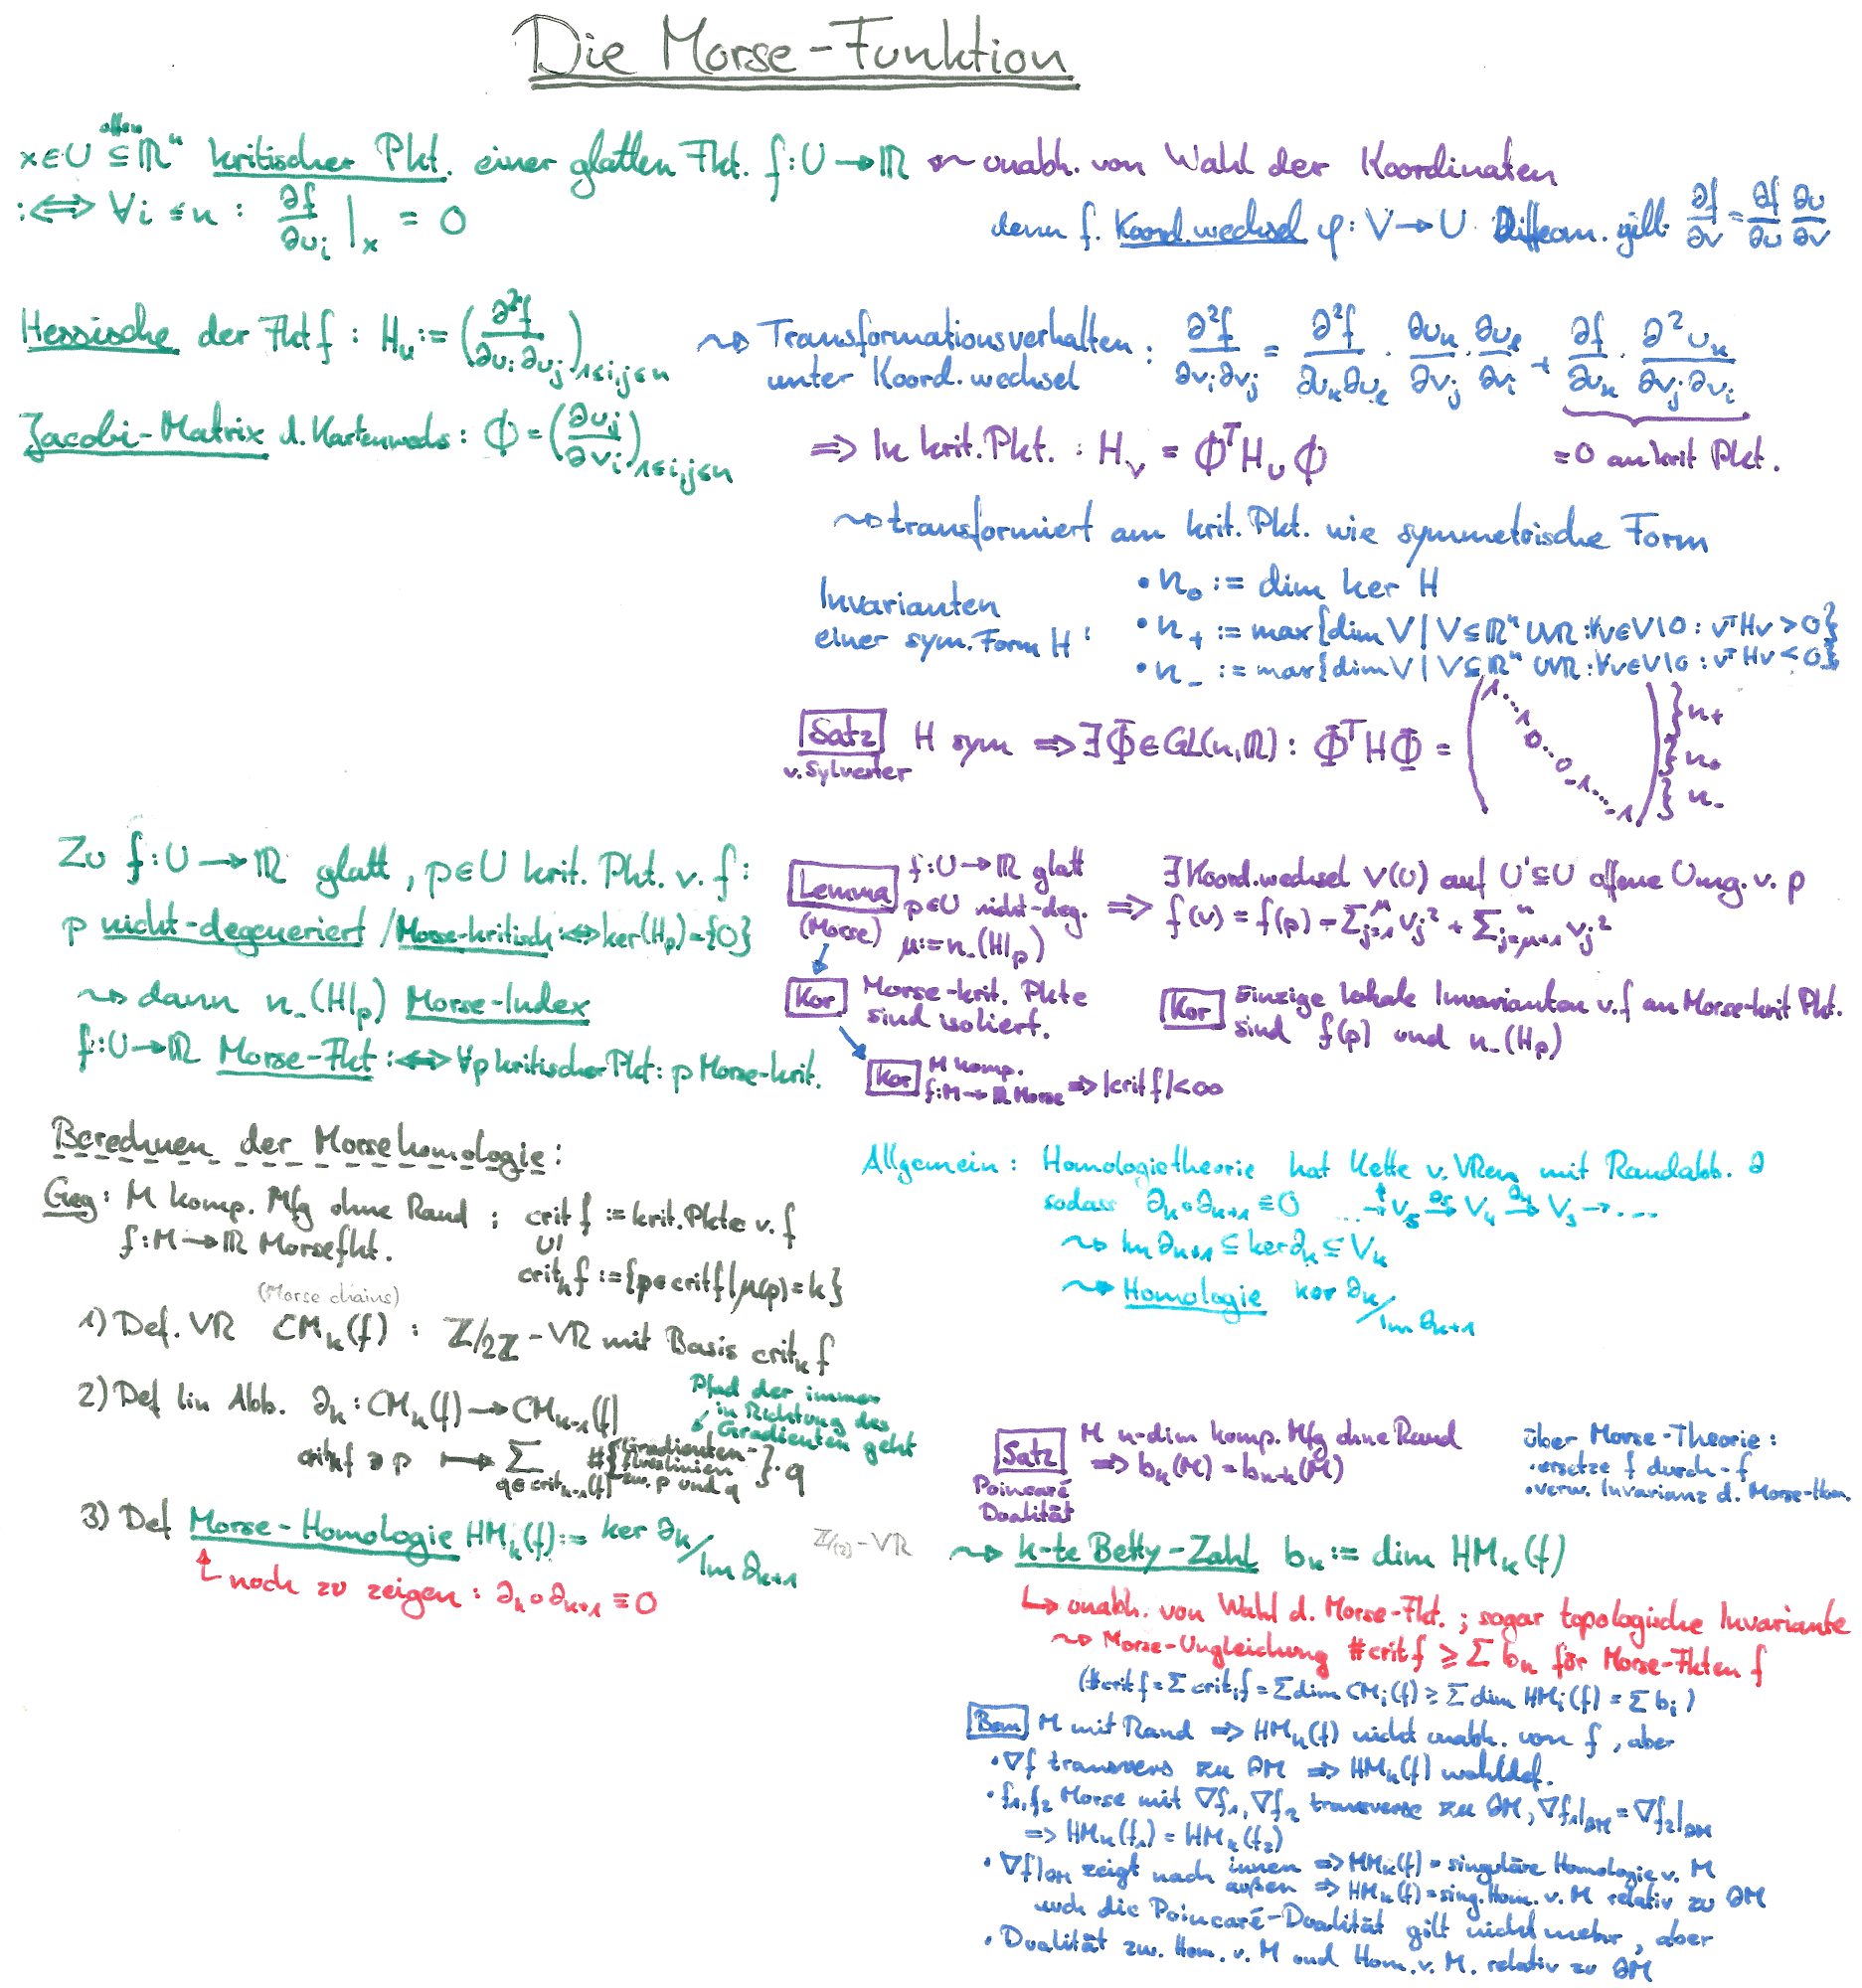 Die Morse-Funktion
x∈U ⊆ ℝⁿ kritischer Pkt. einer glatten Fkt. f:U→ℝ ⇝ unabh. von Wahl der Koordinaten
offen
:⟺ ∀i≤n : ∂f/∂uᵢ |ₓ = 0
denn f. Koord.wechsel φ: V→U Diffeom. gilt: ∂f/∂v = ∂f/∂u ∂u/∂v
Hessische der Fkt f : Hᵤ := (∂²f/∂uᵢ∂uⱼ)₁≤i,j≤n
⇝ Transformationsverhalten unter Koord.wechsel : ∂²f/∂vᵢ∂vⱼ = ∂²f/∂uₖ∂uₗ · ∂uₖ/∂vⱼ · ∂uₗ/∂vᵢ + ∂f/∂uₖ · ∂²uₖ/∂vⱼ∂vᵢ
=0 an krit Pkt.
Jacobi-Matrix d. Kartenwechs: ϕ = (∂uⱼ/∂vᵢ)₁≤i,j≤n
⇒ In krit. Pkt. : Hᵥ = ϕᵀ Hᵤ ϕ
⇝ transformiert am krit. Pkt. wie symmetrische Form
Invarianten
einer sym. Form H :
• n₀ := dim ker H
• n₊ := max{dim V | V⊆ℝⁿ UVR : ∀v∈V\0 : vᵀHv > 0}
• n₋ := max{dim V | V⊆ℝⁿ UVR : ∀v∈V\0 : vᵀHv < 0}
Satz v. Sylvester H sym ⇒ ∃Φ∈GL(n,ℝ) : ΦᵀHΦ = (1 ⋱ 1 0 ⋱ 0 -1 ⋱ -1) } n₊ } n₀ } n₋
Zu f:U→ℝ glatt, p∈U krit. Pkt. v. f :
p nicht-degeneriert / Morse-kritisch :⟺ ker(Hₚ)={0}
⇝ dann n₋(H|ₚ) Morse-Index
f:U→ℝ Morse-Fkt :⟺ ∀p kritischer Pkt: p Morse-krit.
Lemma (Morse)
f:U→ℝ glatt
p∈U nicht-deg.
μ:=n₋(H|ₚ)
⇒ ∃ Koord.wechsel v(u) auf U'⊆U offene Umg. v. p
f(v) = f(p) - ∑ⱼ₌₁^μ vⱼ² + ∑ⱼ₌μ₊₁ⁿ vⱼ²
Kor Morse-krit. Pkte
sind isoliert.
Kor Einzige lokale Invarianten v. f an Morse-krit Pkt.
sind f(p) und n₋(Hₚ)
Kor M komp.
f:M→ℝ Morse ⇒ |crit f|<∞
Berechnen der Morsehomologie:
Geg: M komp. Mfg ohne Rand ; crit f := krit. Pkte v. f
f:M→ℝ Morsefkt.
∪|
critₖ f := {p∈crit f | μ(p)=k}
(Morse chains)
1) Def. VR CMₖ(f) : ℤ/2ℤ-VR mit Basis critₖ f
2) Def lin Abb. ∂ₖ : CMₖ(f) → CMₖ₋₁(f)
critₖf ∋ p ⟼ ∑ q∈critₖ₋₁(f) #{Gradienten-flusslinien zw. p und q}·q
Pfad der immer
in Richtung des
Gradienten geht
3) Def Morse-Homologie HMₖ(f) := ker ∂ₖ / Im ∂ₖ₊₁
ℤ/(2)-VR
noch zu zeigen : ∂ₖ∘∂ₖ₊₁ ≡ 0
Allgemein : Homologietheorie hat Kette v. VRen mit Randabb. ∂
sodass ∂ₖ∘∂ₖ₊₁ ≡ 0 … → V₅ →∂₅ V₄ →∂₄ V₃ → …
⇝ Im ∂ₖ₊₁ ⊆ ker ∂ₖ ⊆ Vₖ
⇝ Homologie ker ∂ₖ / Im ∂ₖ₊₁
Satz Poincaré Dualität
M n-dim komp. Mfg ohne Rand
⇒ bₖ(M) = bₙ₋ₖ(M)
über Morse-Theorie :
• ersetze f durch -f
• verw. Invarianz d. Morse-Hom.
⇝ k-te Betty-Zahl bₖ := dim HMₖ(f)
↳ unabh. von Wahl d. Morse-Fkt. ; sogar topologische Invariante
⇝ Morse-Ungleichung #crit f ≥ ∑ bₖ für Morse-Fkten f
(#crit f = ∑ critᵢ f = ∑ dim CMᵢ(f) ≥ ∑ dim HMᵢ(f) = ∑ bᵢ)
Bem M mit Rand ⇒ HMₖ(f) nicht unabh. von f, aber
• ∇f transvers zu ∂M ⇒ HMₖ(f) wohldef.
• f₁,f₂ Morse mit ∇f₁,∇f₂ transverse zu ∂M, ∇f₁|∂M = ∇f₂|∂M
⇒ HMₖ(f₁) = HMₖ(f₂)
• ∇f|∂M zeigt nach innen ⇒ HMₖ(f) = singuläre Homologie v. M
außen ⇒ HMₖ(f) = sing. Hom. v. M relativ zu ∂M
auch die Poincaré-Dualität gilt nicht mehr, aber
• Dualität zw. Hom. v. M und Hom. v. M. relativ zu ∂M